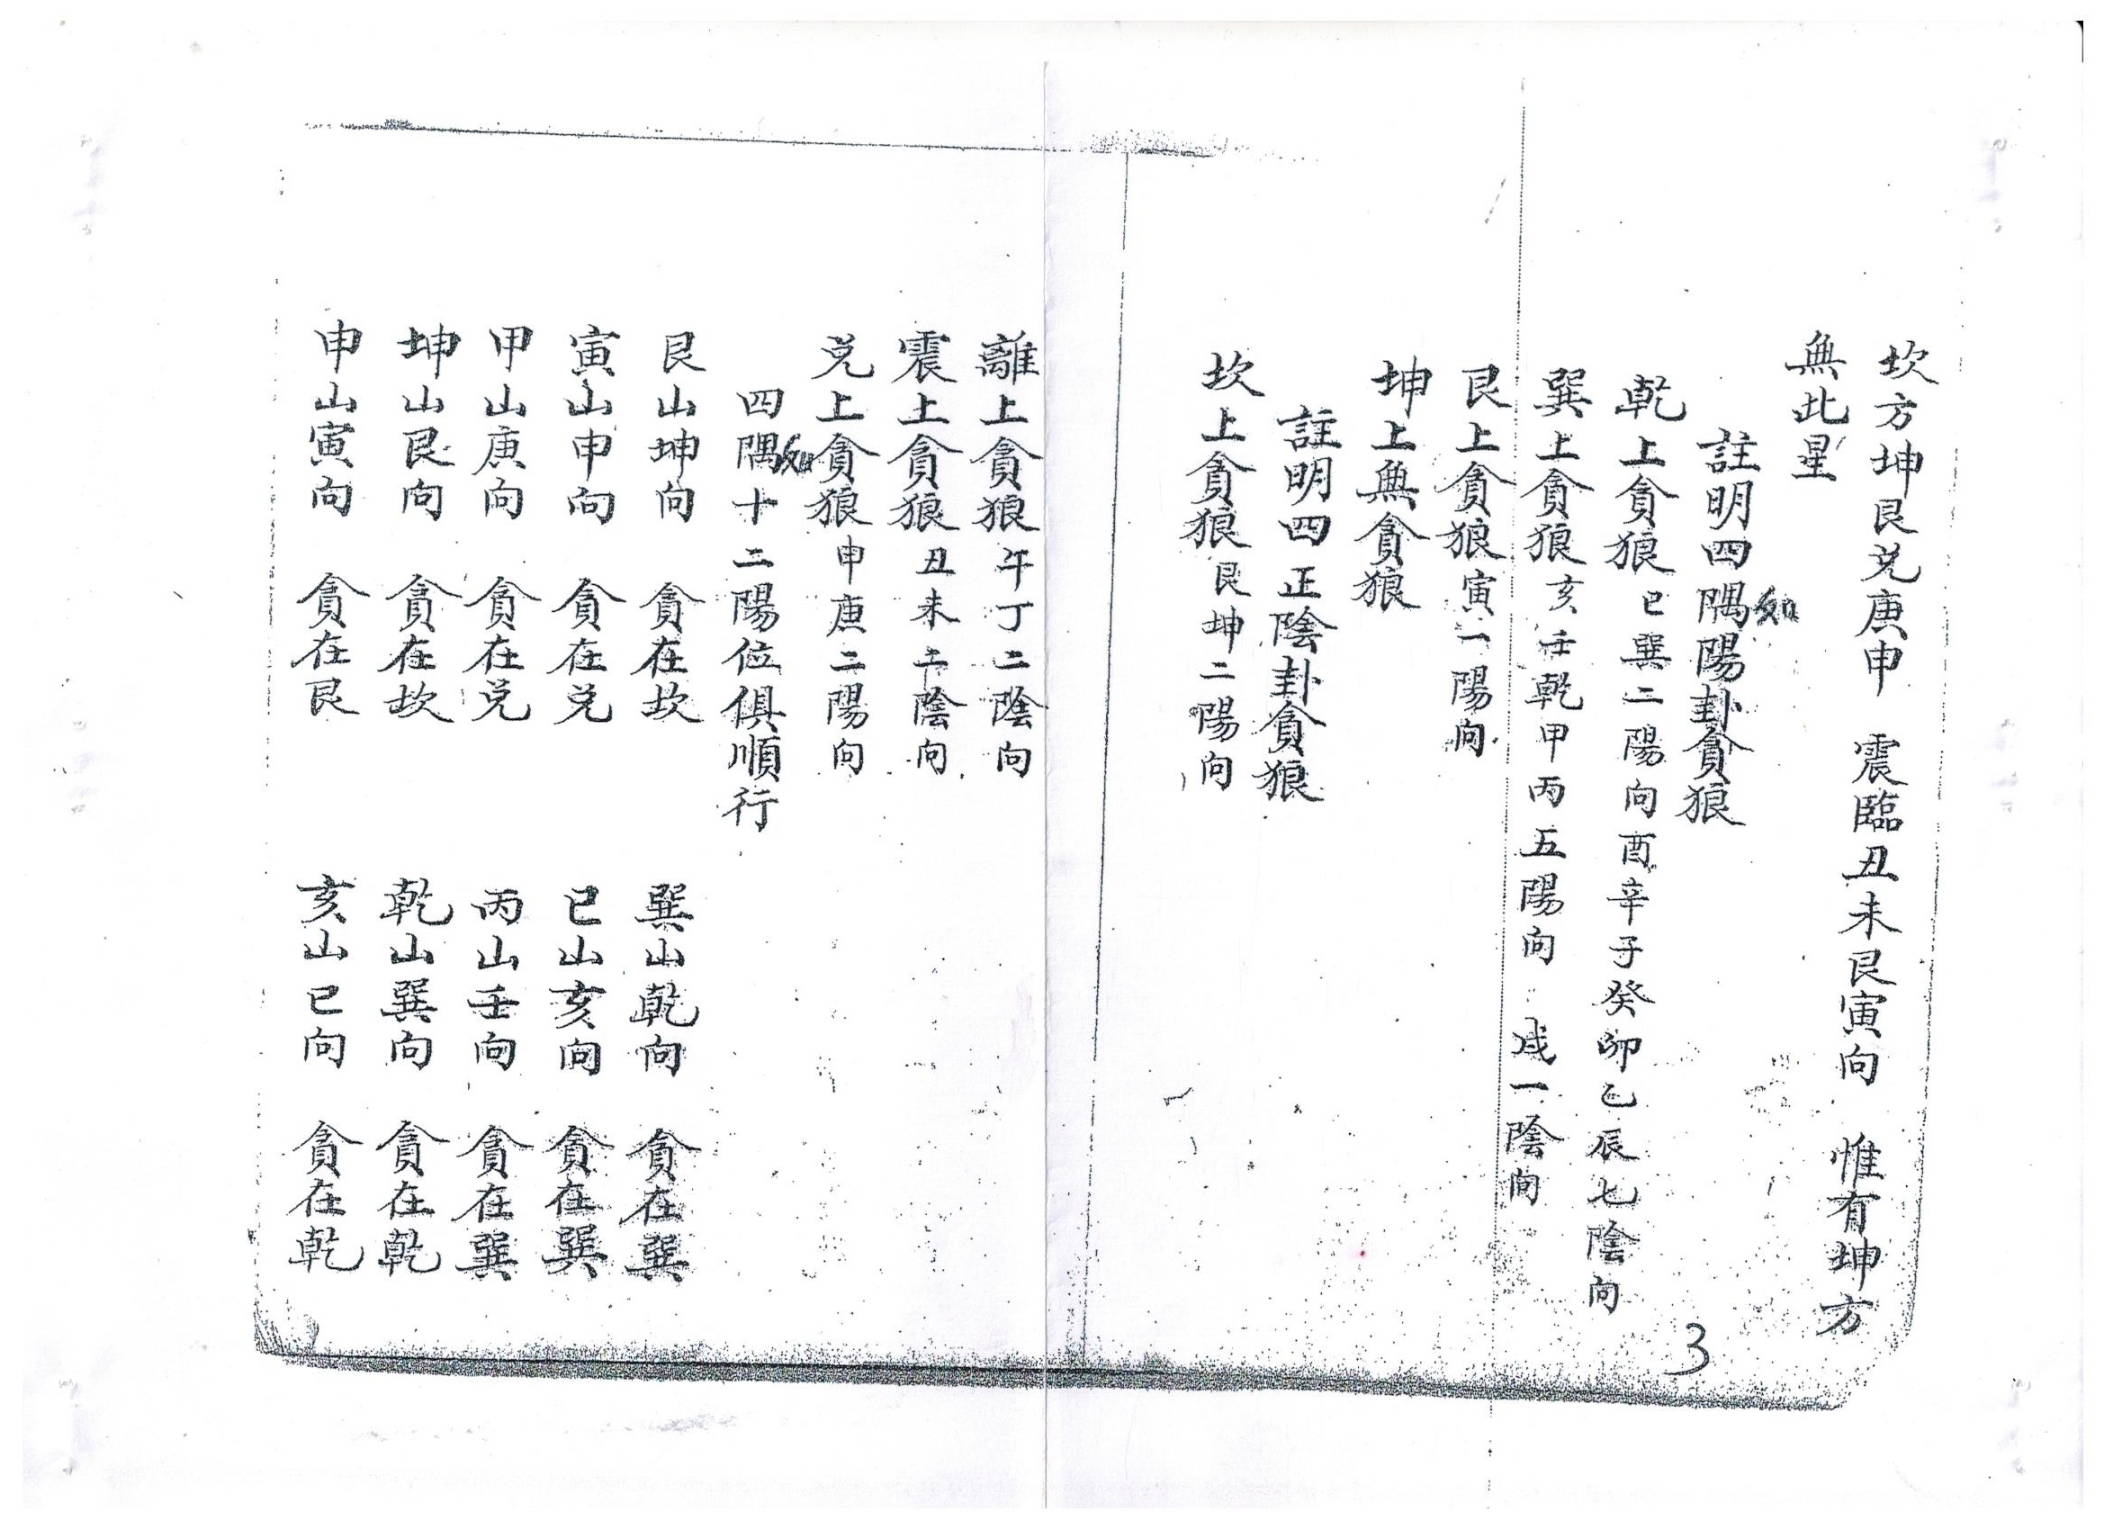 坎方坤艮兌庚申　震臨丑未艮寅向　惟有坤方
無此星
註明四隅陽卦貪狼
如
乾上貪狼巳巽二陽向酉辛子癸卯乙辰七陰向
巽上貪狼亥壬乾甲丙五陽向　戌一陰向
艮上貪狼寅一陽向
坤上無貪狼
註明四正陰卦貪狼
坎上貪狼艮坤二陽向
3
離上貪狼午丁二陰向
震上貪狼丑未二陰向
兌上貪狼申庚二陽向
四隅十二陽位俱順行
如
艮山坤向　貪在坎　巽山乾向　貪在巽
寅山申向　貪在兌　巳山亥向　貪在巽
甲山庚向　貪在兌　丙山壬向　貪在巽
坤山艮向　貪在坎　乾山巽向　貪在乾
申山寅向　貪在艮　亥山巳向　貪在乾